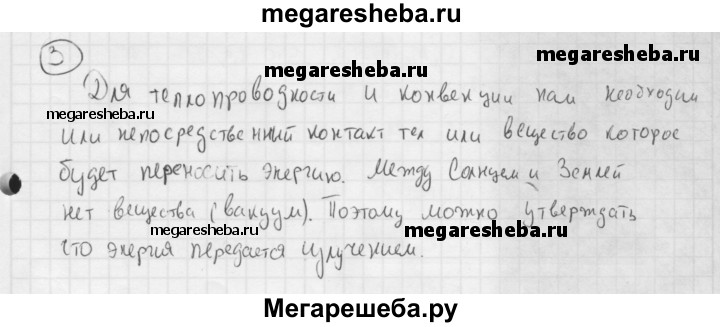 megaresheba.ru
3
megaresheba.ru
megaresheba.ru
Для теплопроводности и конвекции нам необходим
megaresheba.ru
или непосредственный контакт тел или вещество которое
будет переносить энергию. Между Солнцем и Землей
нет вещества (вакуум). Поэтому можно утверждать
megaresheba.ru
что энергия передается излучением.
Мегарешеба.ру